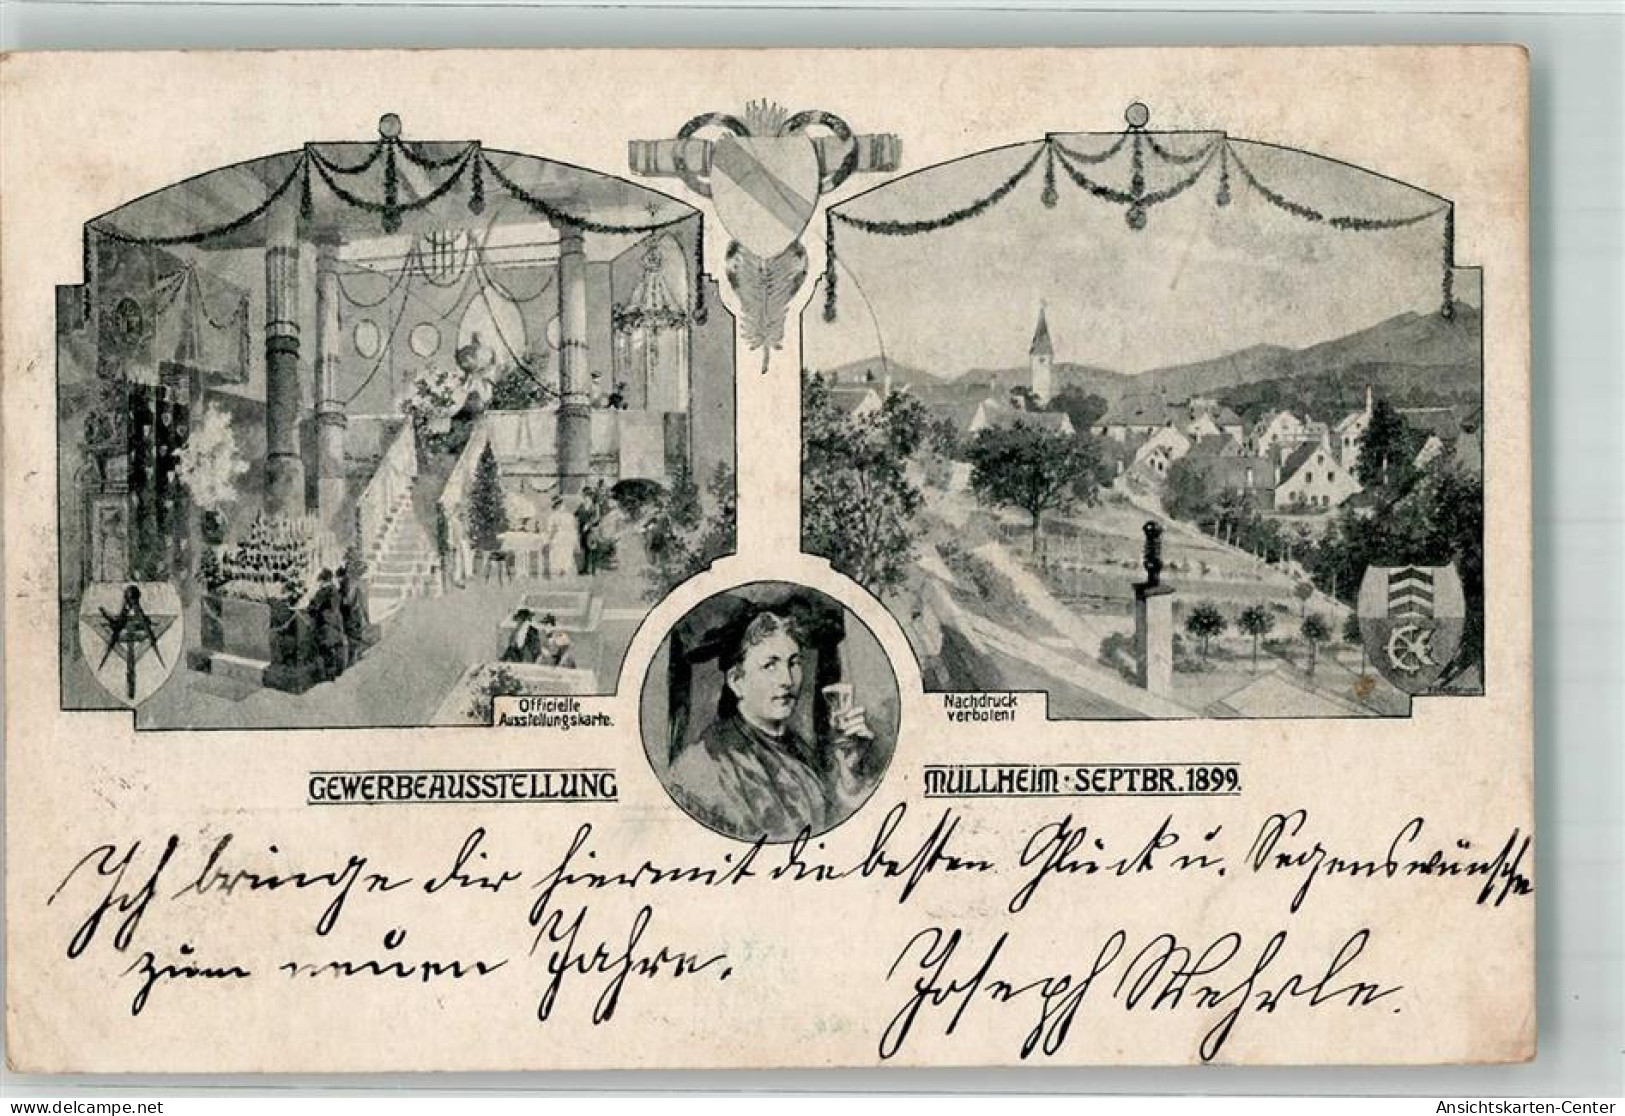 Officielle
Ausstellungskarte.
Nachdruck
verboten!
GEWERBEAUSSTELLUNG
MÜLLHEIM · SEPTBR. 1899.
Ich bringe dir hiermit die besten Glück u. Segenswünsche
zum neuen Jahre.
Joseph Wehrle.
delcampe.net
Ansichtskarten-Center